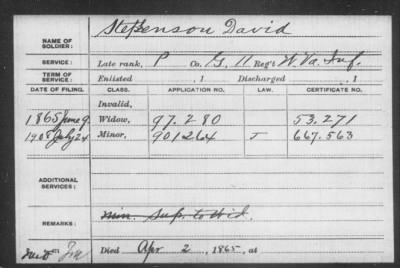 NAME OF SOLDIER: Stephenson David
SERVICE: Late rank, P Co. G, 11 Reg't W. Va. Inf.
TERM OF SERVICE: Enlisted , 1 Discharged , 1
DATE OF FILING. CLASS. APPLICATION NO. LAW. CERTIFICATE NO.
Invalid,
1865 June 9. Widow, 97.280 53.271
1905 July 24 Minor, 901264 J 667.563
ADDITIONAL SERVICES:
REMARKS: Min. Sup. to Wid.
Died Apr 2, 1865, at